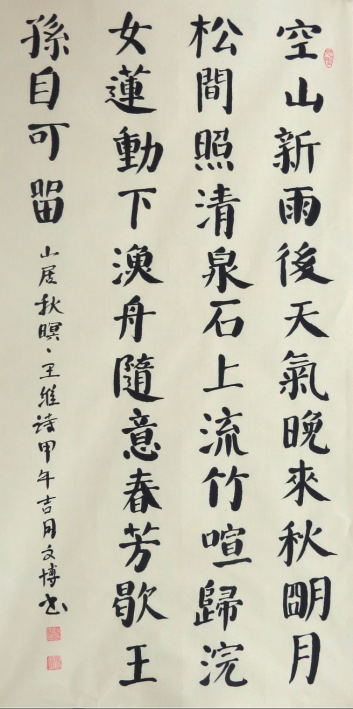 空山新雨後天氣晚來秋朙月
松間照清泉石上流竹喧歸浣
女蓮動下漁舟隨意春芳歇王
孫自可留
山居秋暝、王維诗甲午吉月文博书